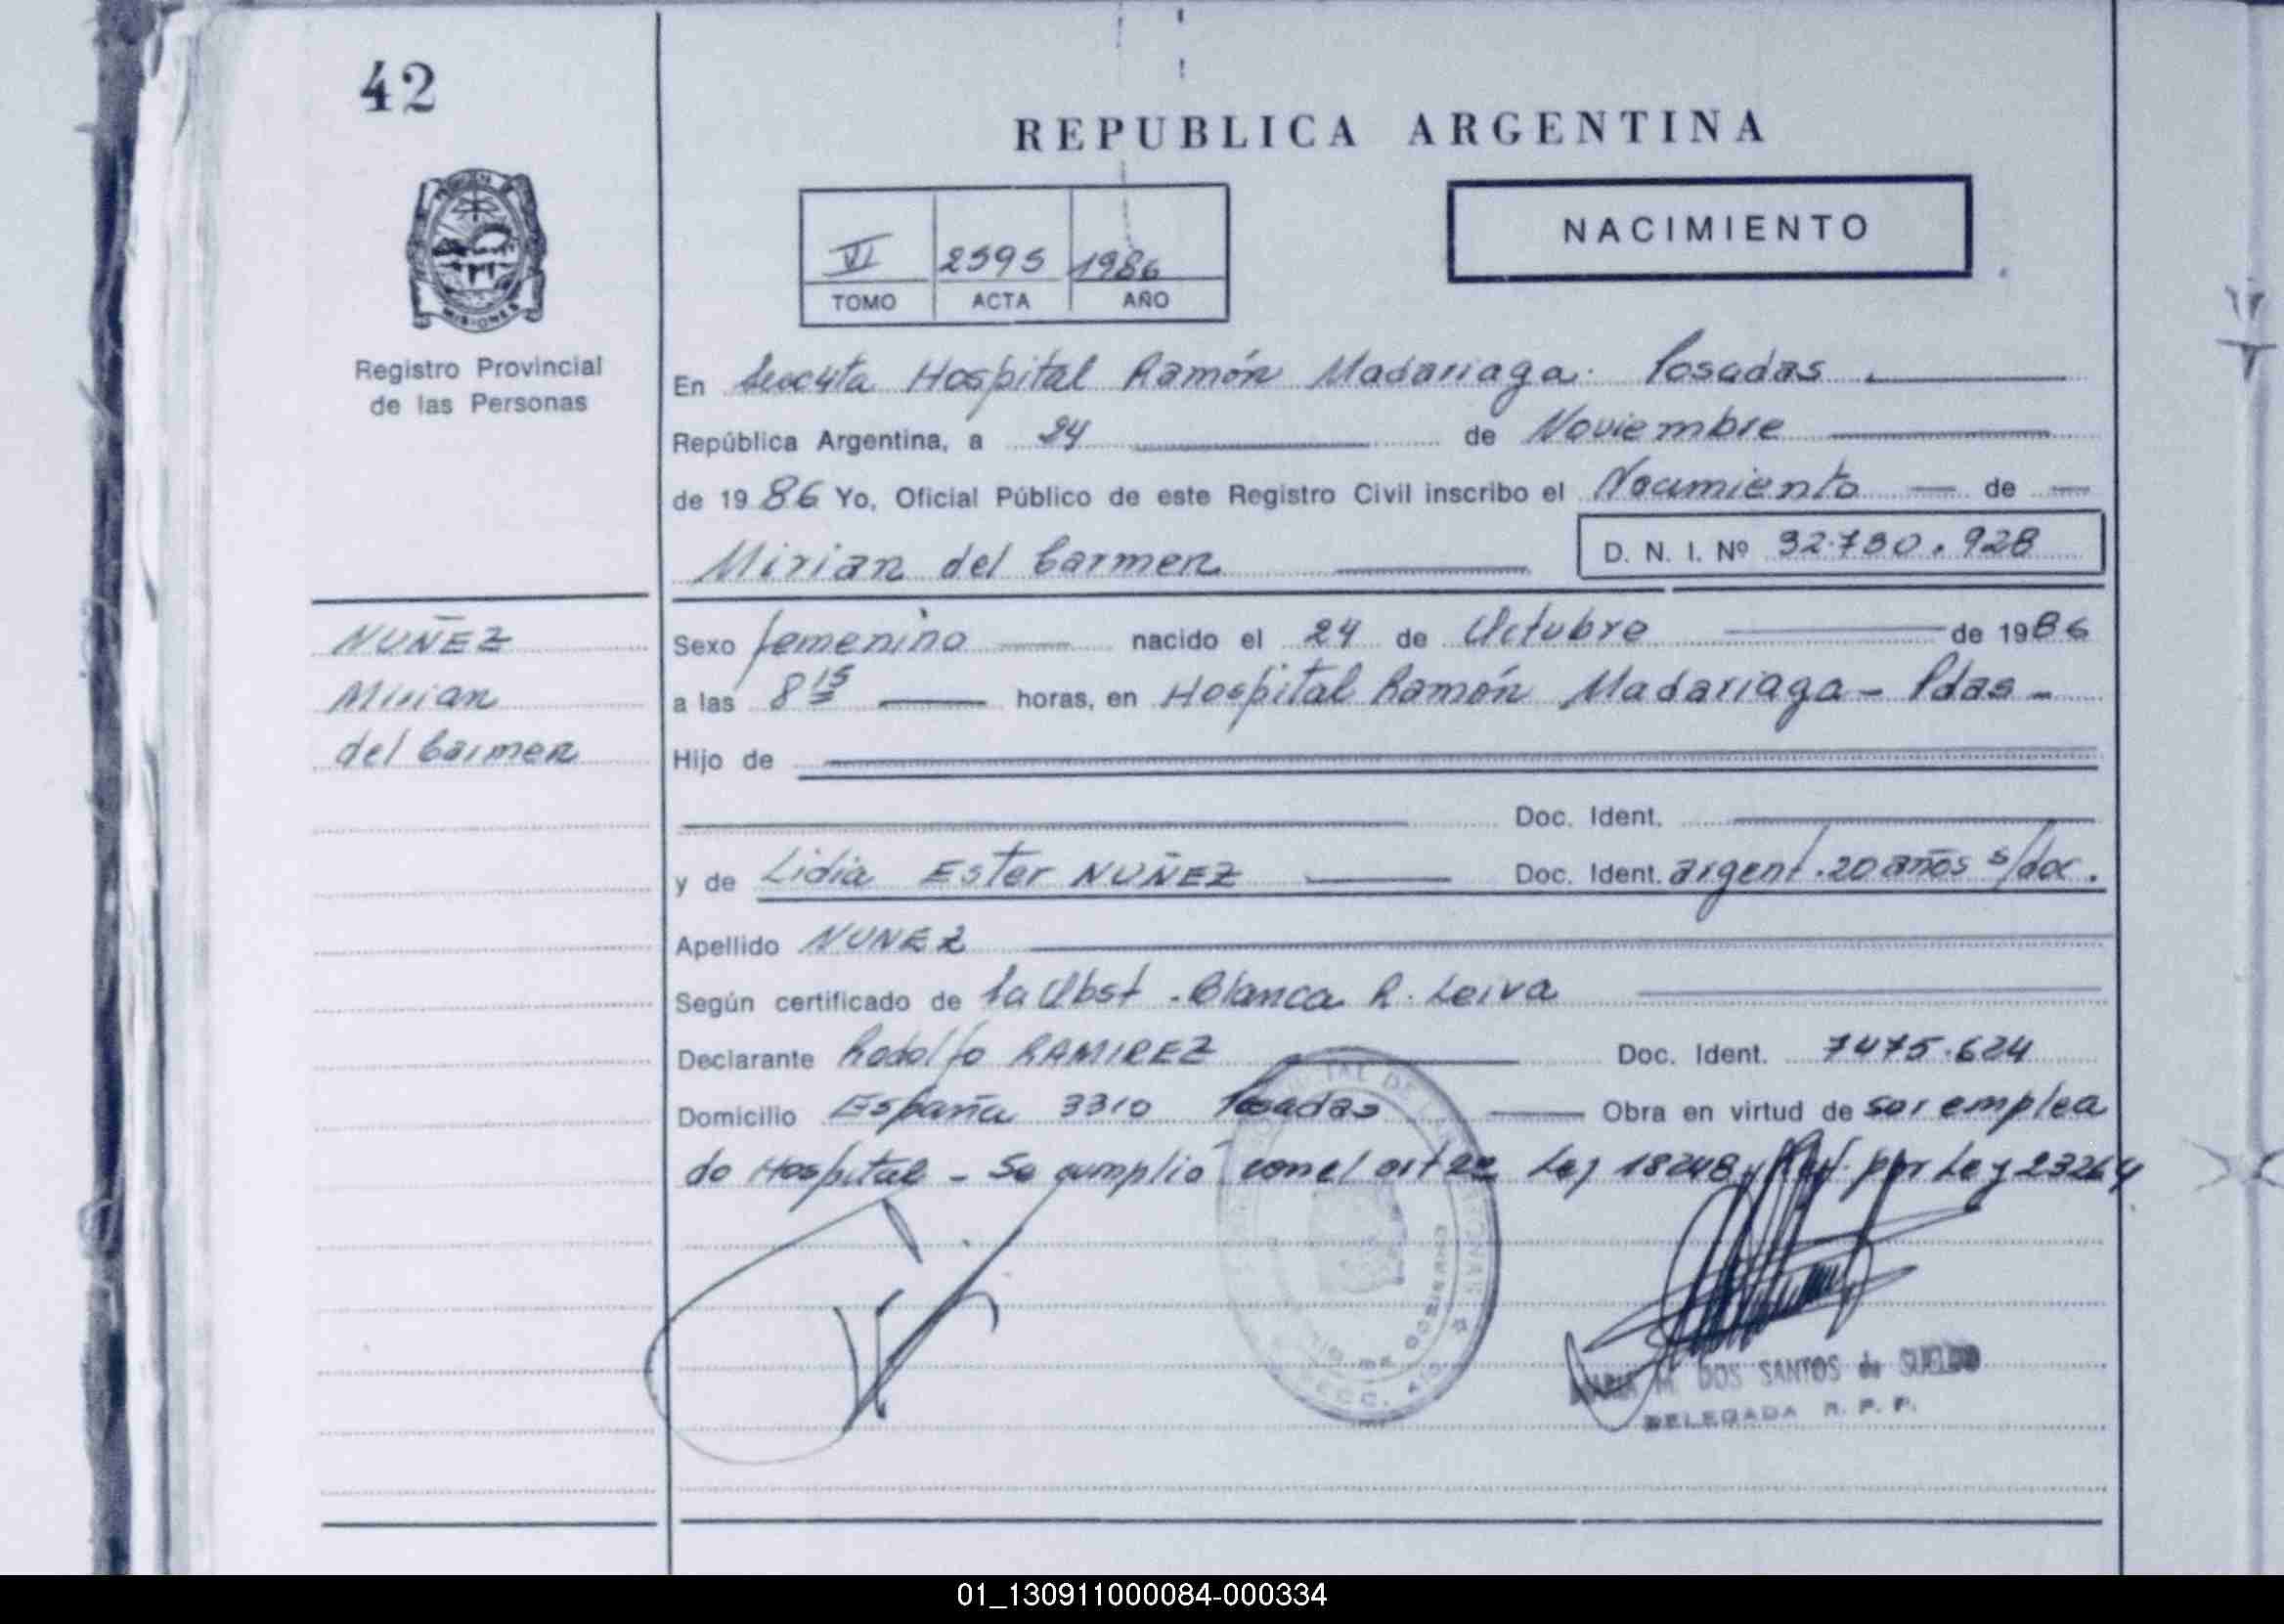 42
REPUBLICA ARGENTINA
NACIMIENTO
VI 2595 1986
TOMO ACTA AÑO
MISIONES
Registro Provincial
de las Personas
En Hospital Ramón Madariaga. Posadas
República Argentina, a 24 de Noviembre
de 1986 Yo, Oficial Público de este Registro Civil inscribo el Nacimiento de
Mirian del Carmen D. N. I. Nº 32.730.928
NUÑEZ
Mirian
del Carmen
Sexo femenino nacido el 24 de Octubre de 1986
a las 8 15 horas, en Hospital Ramón Madariaga - Pdas -
Hijo de
Doc. Ident.
y de Lidia Ester NUÑEZ Doc. Ident. argent. 20 años s/doc.
Apellido NUÑEZ
Según certificado de la Obst. Blanca R. Leiva
Declarante Rodolfo RAMIREZ Doc. Ident. 7475.624
Domicilio España 3310 Posadas Obra en virtud de ser emplea
do Hospital - Se cumplió con el art Ley 18248 y por Ley 23264
MARIA M. DOS SANTOS de SUELDO
DELEGADA R. P. P.
01_130911000084-000334